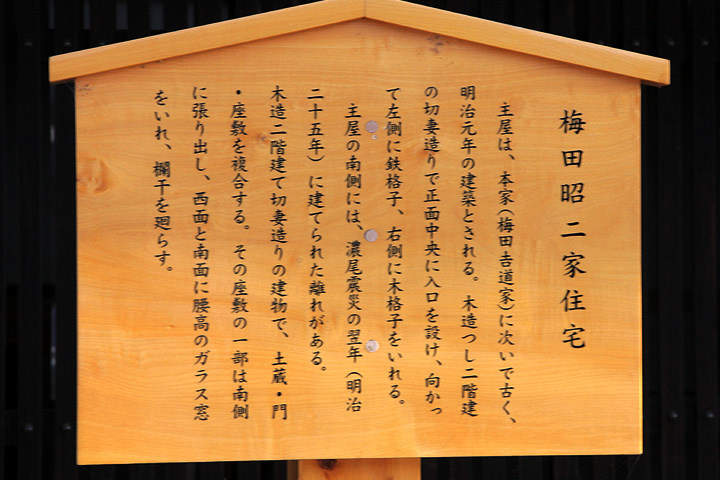 梅田昭二家住宅
主屋は、本家(梅田吉道家)に次いで古く、
明治元年の建築とされる。木造つし二階建
の切妻造りで正面中央に入口を設け、向かっ
て左側に鉄格子、右側に木格子をいれる。
主屋の南側には、濃尾震災の翌年(明治
二十五年)に建てられた離れがある。
木造二階建て切妻造りの建物で、土蔵・門
・座敷を複合する。その座敷の一部は南側
に張り出し、西面と南面に腰高のガラス窓
をいれ、欄干を廻らす。